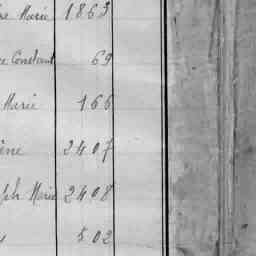 Marie 1863
Constant 69
Marie 166
ène 2407
ph Marie 2408
502